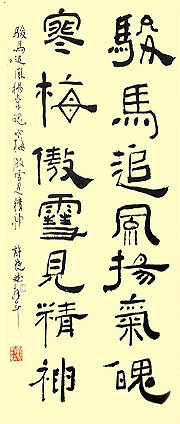 駿馬追風揚氣魄
寒梅傲雪見精神
駿馬追風揚氣魄 寒梅傲雪見精神